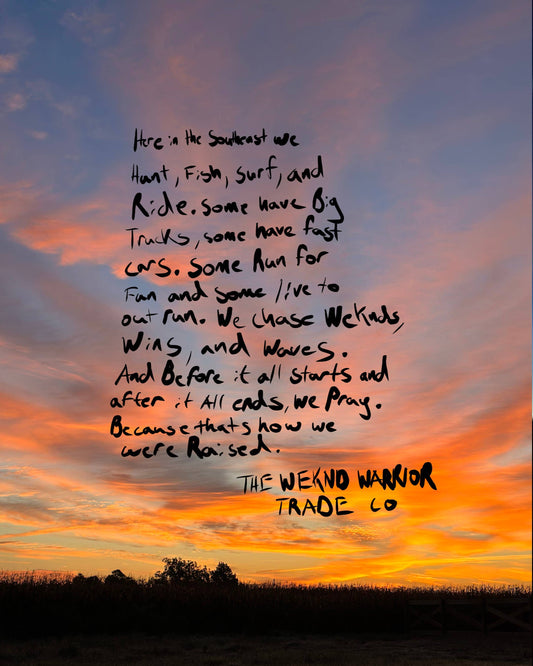 Here in the Southeast we
Hunt, Fish, Surf, and
Ride. Some have Big
Trucks, some have fast
cars. Some Run for
Fun and some live to
out run. We chase Weknds,
Wins, and Waves.
And Before it all starts and
after it All ends, we Pray.
Because thats how we
were Raised.
THE WEKND WARRIOR
TRADE CO